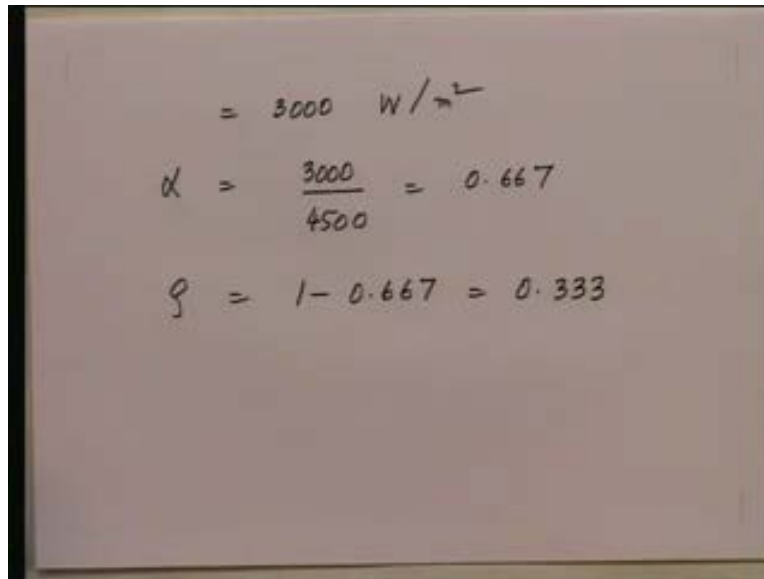 = 3000 W/m²
α = 3000/4500 = 0.667
ρ = 1 - 0.667 = 0.333